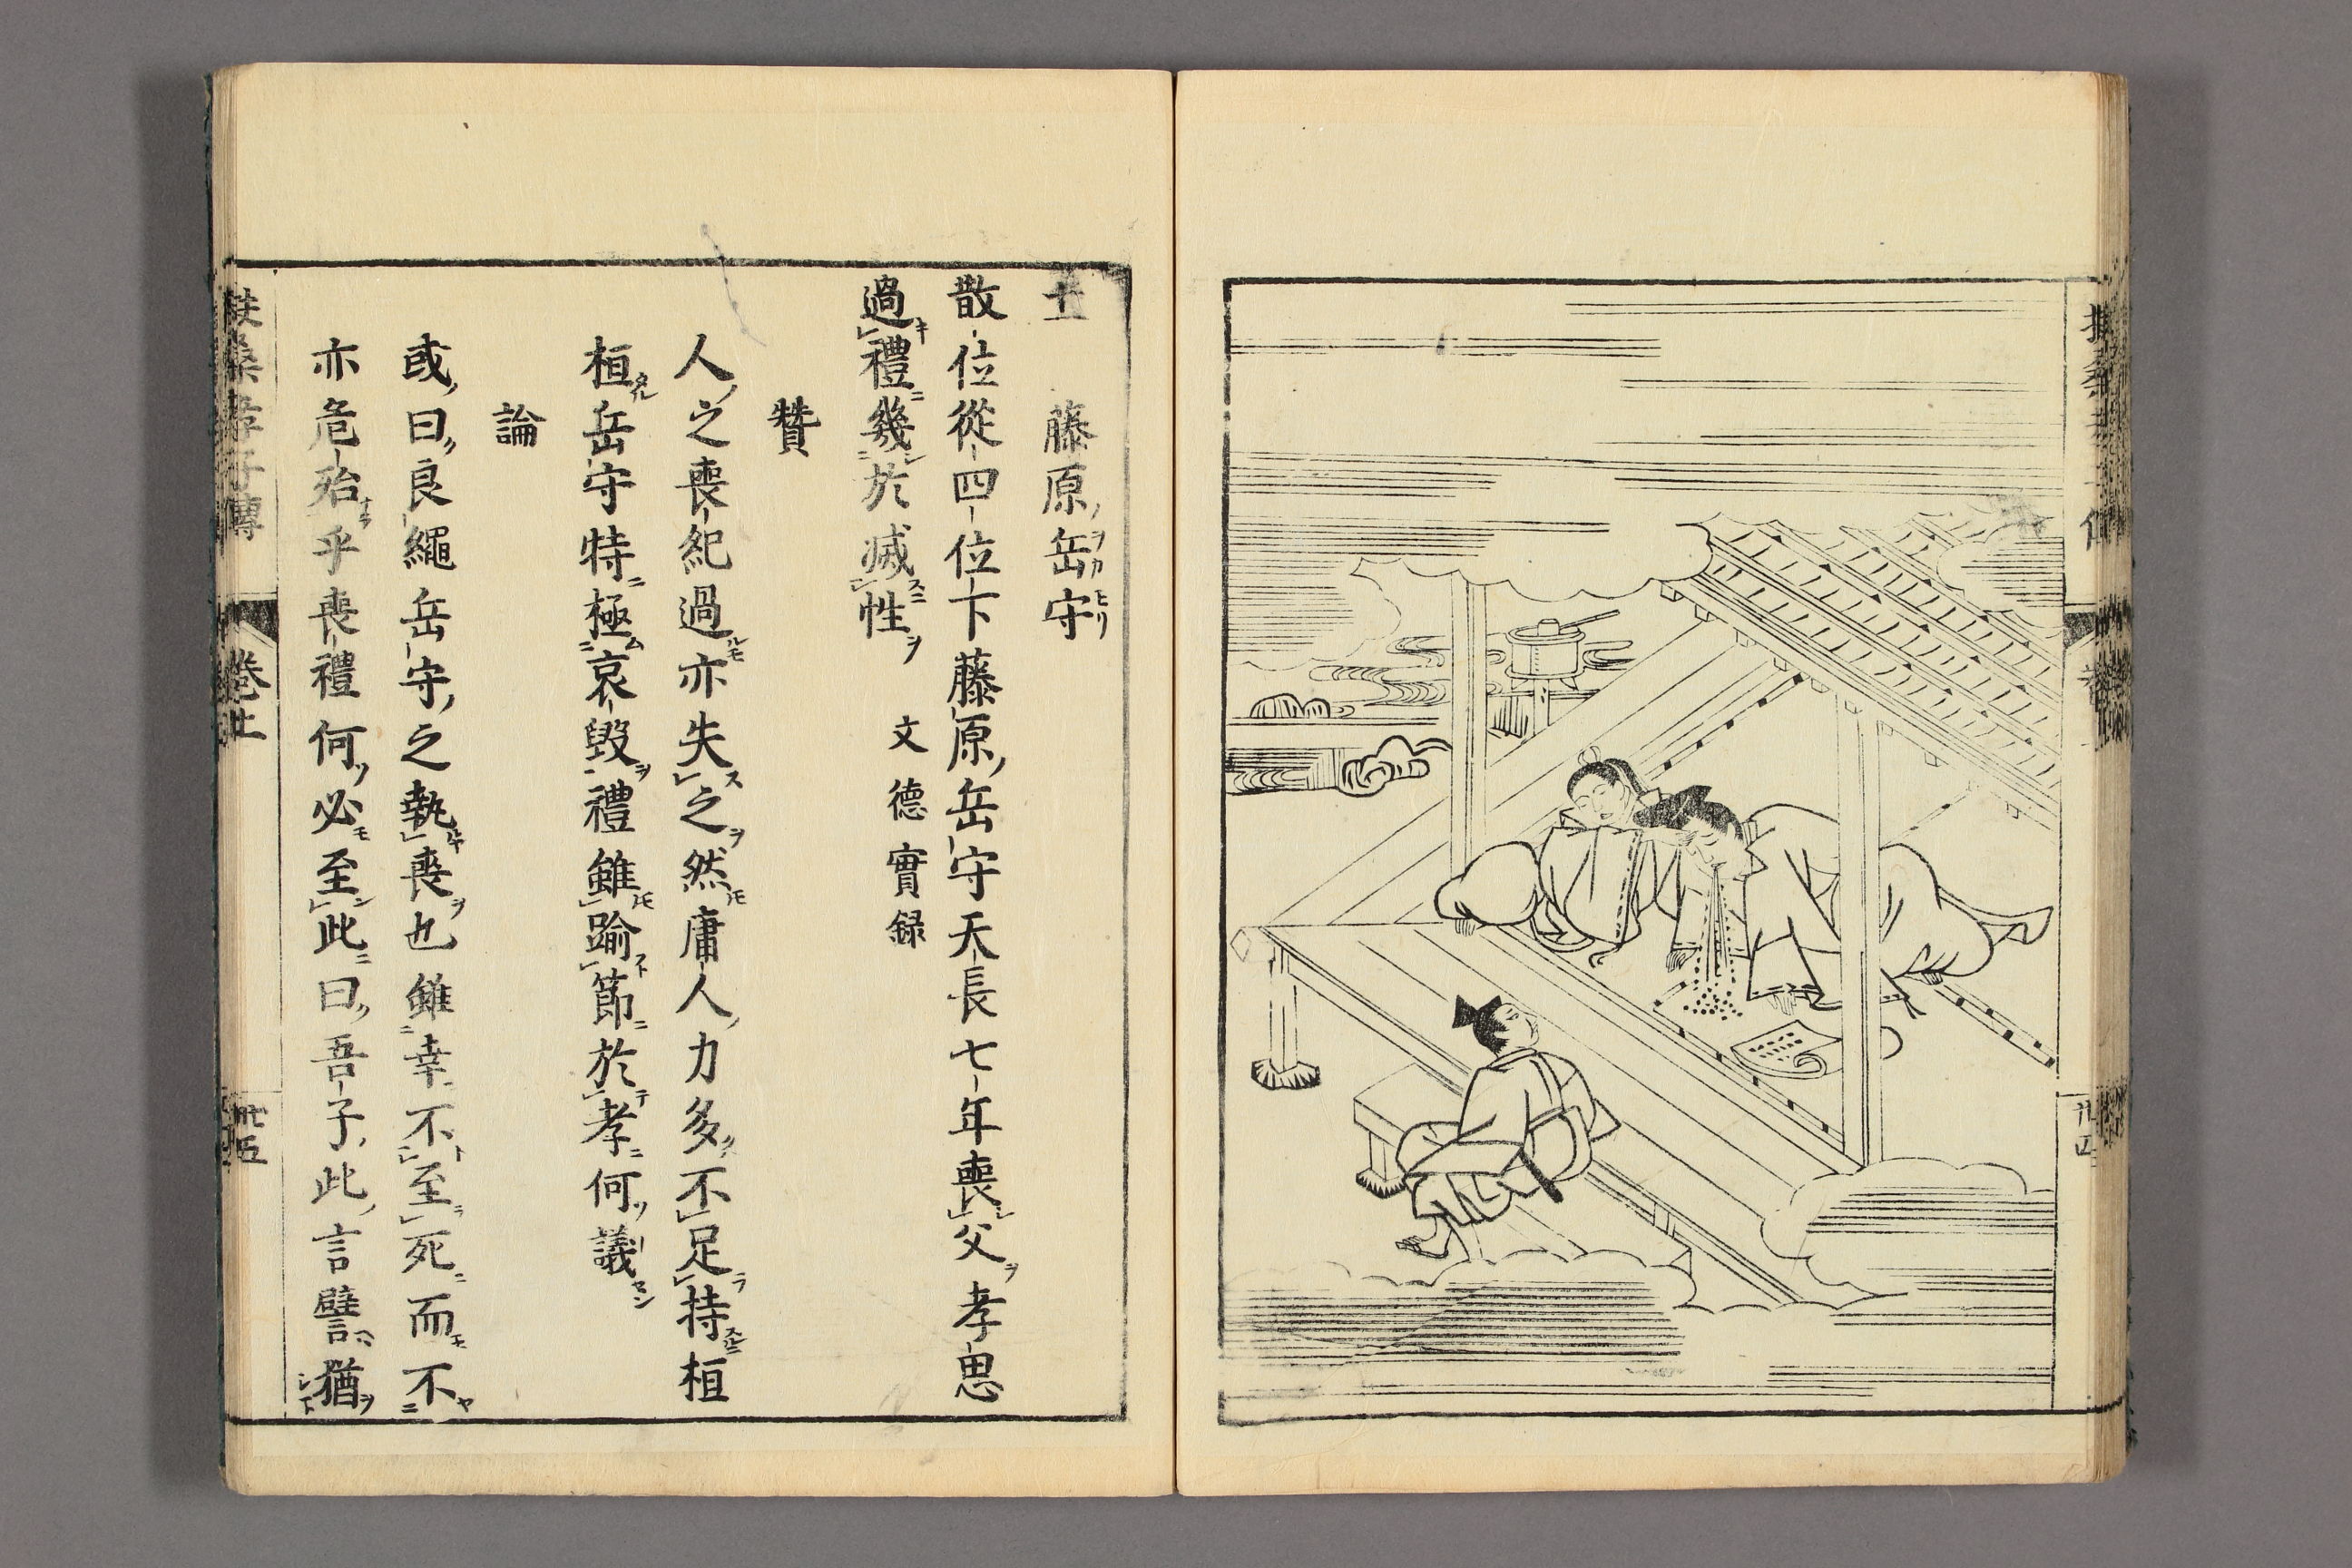 十一 藤原岳守
散位從四位下藤原岳守天長七年喪父孝思
過禮幾於滅性 文德實録
贊
人之喪紀過亦失之然庸人力多不足特桓
桓岳守特極哀毀禮雖踰節於孝何議
論
或曰良繩岳守之執喪也雖幸不至死而不
亦危殆乎喪禮何必至此曰吾子此言譬猶
扶桑孝子傳 卷上 卅五